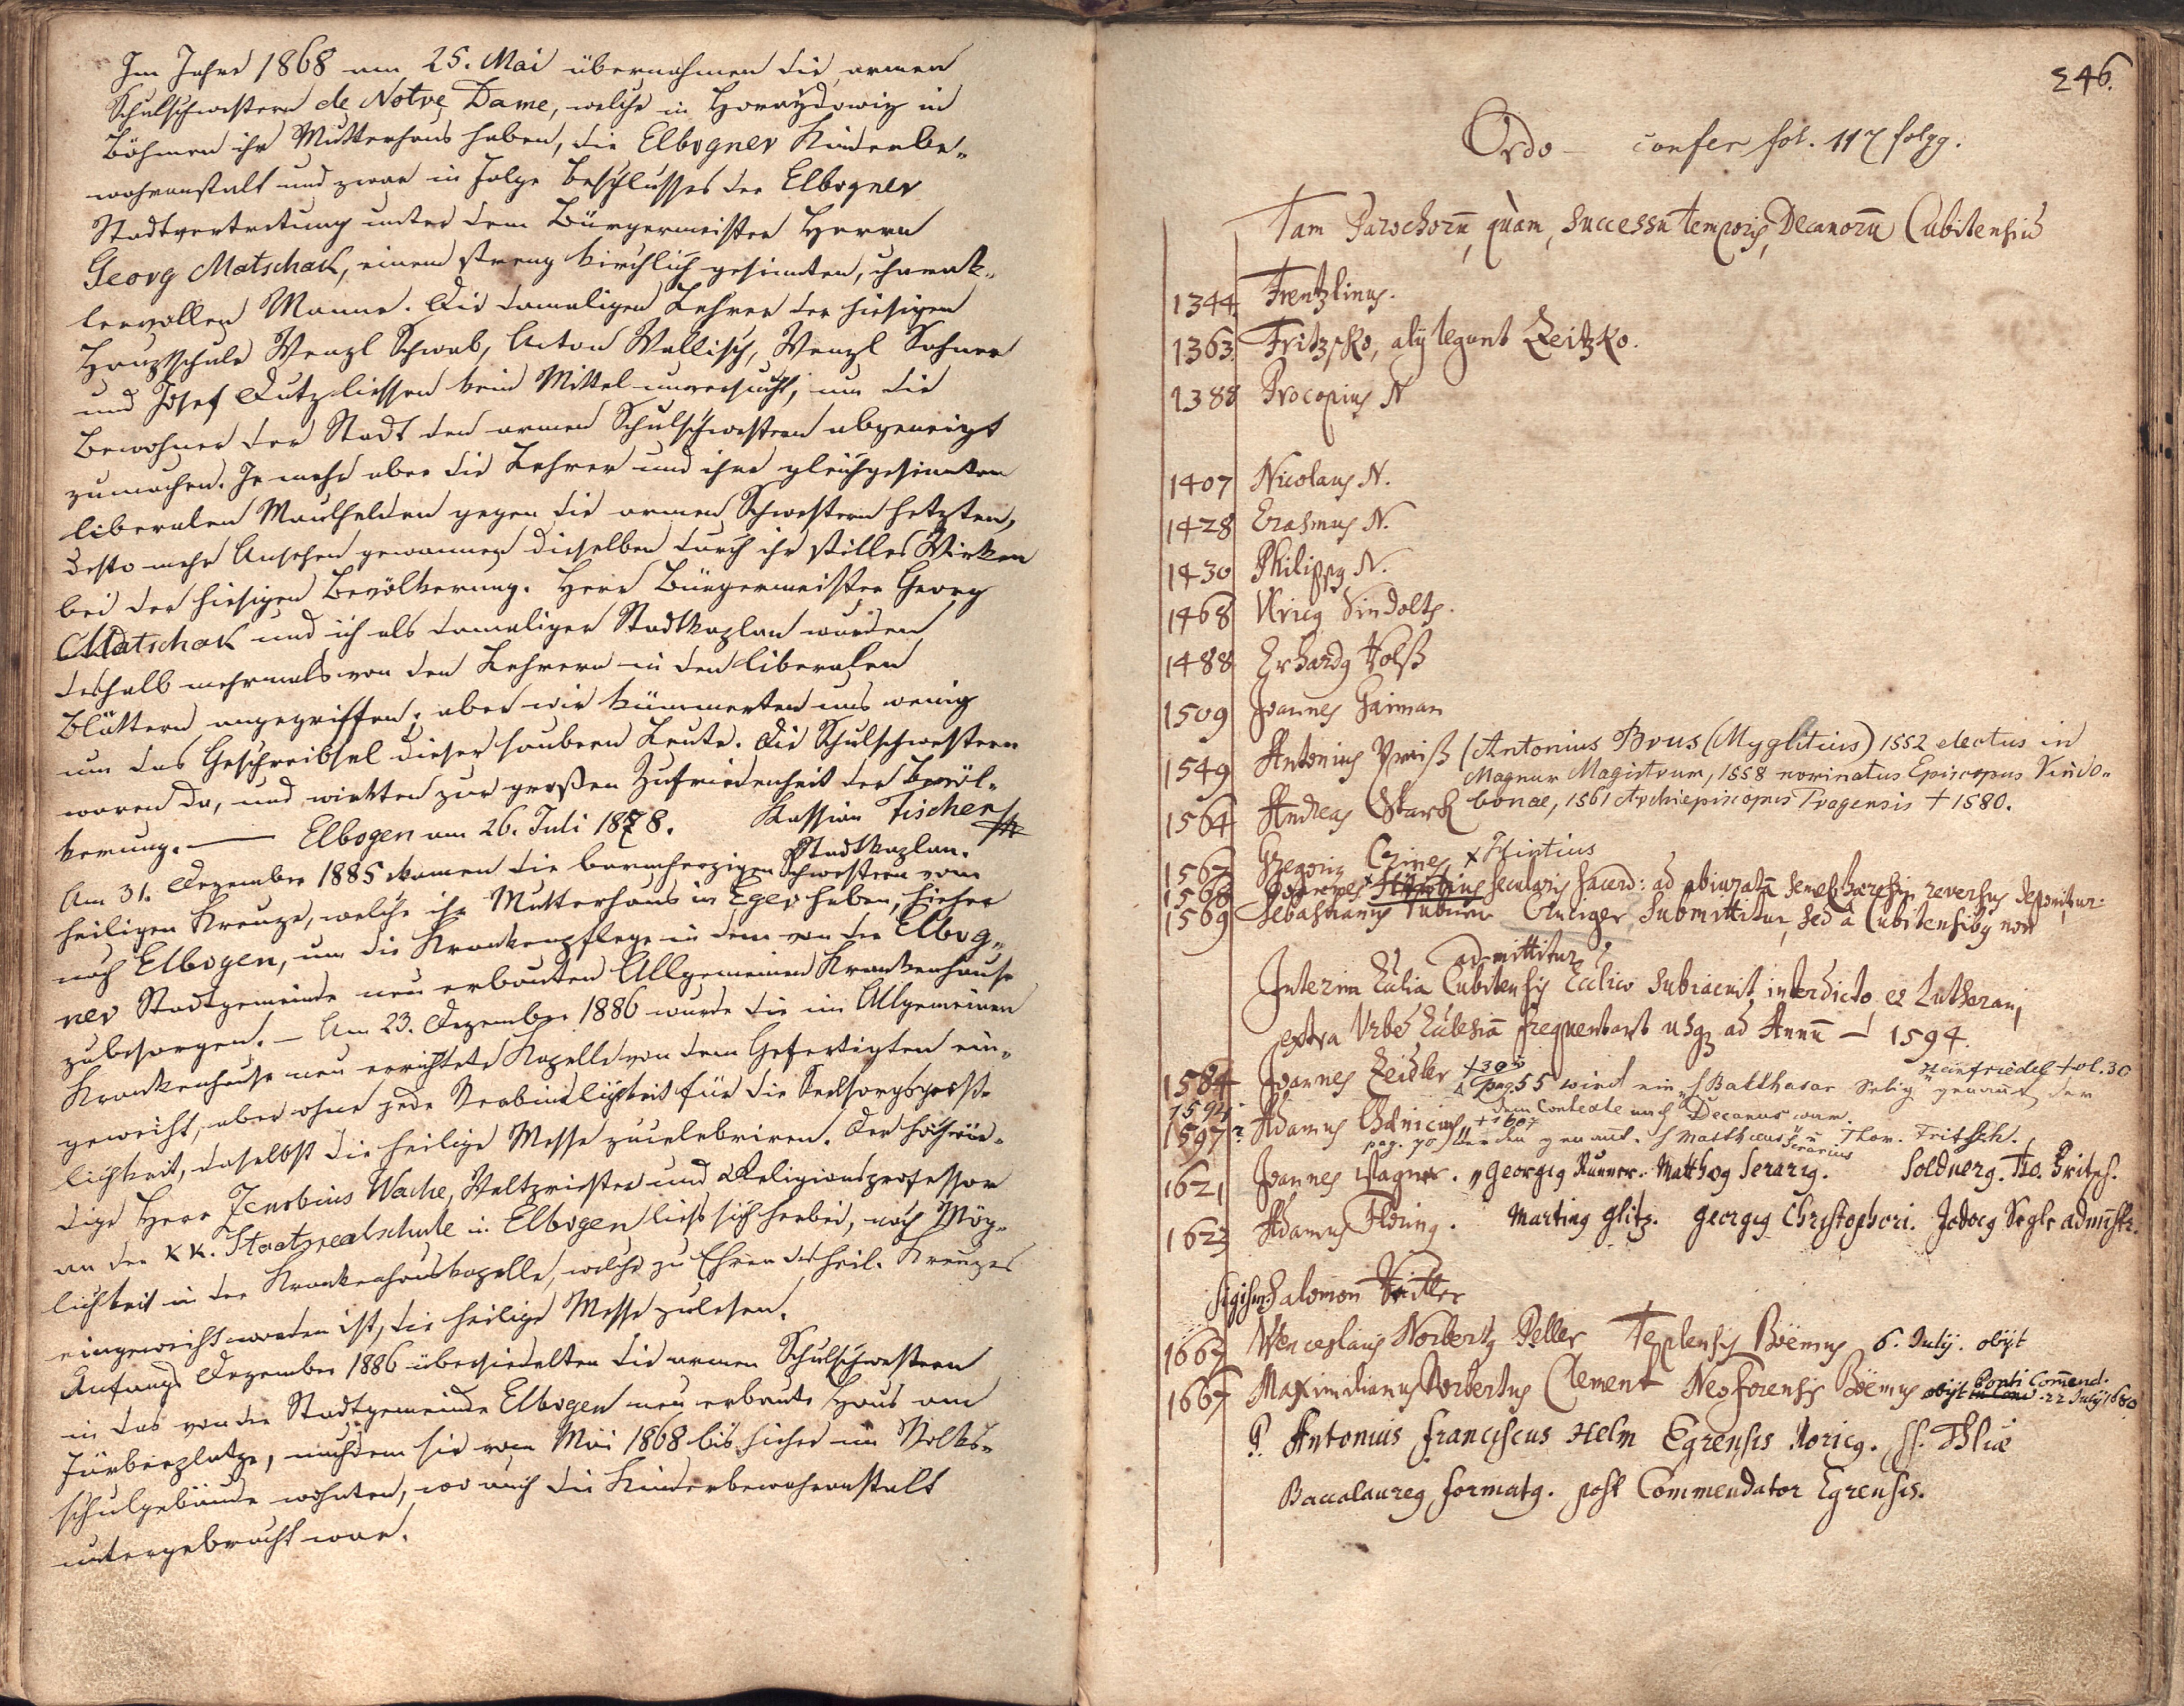 Im Jahre 1868 am 25. Mai übernahmen die armen
Schulschwestern de Notre Dame, welche in Horaždowitz in
Böhmen ihr Mutterhaus haben, die Elbogner Kinderbe-
wahranstalt und zwar in Folge Beschlusses der Elbogner
Stadtvertretung unter dem Bürgermeister Herrn
Georg Matschak, einem streng kirchlich gesinnten, charak-
tervollen Manne. Die damaligen Lehrer der hiesigen
Hauptschule Wenzl Schwab, Anton Wallisch, Wenzl
und Josef Dutz liessen kein Mittel unversucht, um die
Bewohner der Stadt den armen Schulschwestern abgeneigt
zumachen. Je mehr aber die Lehrer und ihre gleichgesinnten
liberalen Maulhelden gegen die armen Schwestern hetzten,
desto mehr Ansehen gewannen dieselben durch ihr stilles Wirken
bei der hiesigen Bevölkerung. Herr Bürgermeister Georg
Matschak und ich als damaliger Stadtkaplan wurden
deshalb mehrmals von den Lehrern in den liberalen
Blättern angegriffen; aber wir kümmerten uns wenig
um das Geschreibsel dieser saubern Leute. Die Schulschwestern
waren da, und wirkten zur großen Zufriedenheit der Bevöl-
kerung. — Elbogen am 26. Juli 1878. Kassian Fischer
Stadtkaplan.
Am 31. Dezember 1885 kamen die barmherzigen Schwestern vom
heiligen Kreuze, welche ihr Mutterhaus in Eger haben, hieher
nach Elbogen, um die Krankenpflege in dem von der Elbog-
ner Stadtgemeinde neu erbauten Allgemeinen Krankenhause
zubesorgen. — Am 23. Dezember 1886 wurde die im Allgemeinen
Krankenhause neu errichtete Kapelle von dem Gefertigten ein-
geweiht, aber ohne jede Verbindlichkeit für die Seelsorgsgeist-
lichkeit, daselbst die heilige Messe zucelebriren. Der hochwür-
dige Herr Zenobius Wache, Weltpriester und Religionsprofessor
an der k k. Staatsrealschule in Elbogen liess sich herbei, nach Mög-
lichkeit in der Krankenhauskapelle, welche zu Ehren des heil. Kreuzes
eingeweiht worden ist, die heilige Messe zulesen.
Anfangs Dezember 1886 übersiedelten die armen Schulschwestern
in das von der Stadtgemeinde Elbogen neu erbaute Haus am
Färberplatze, nachdem sie vom Mai 1868 bis hieher im Volks-
schulgebäude wohnten, wo auch die Kinderbewahranstalt
untergebracht war.
246.
Ordo — confer fol. 117 folgg.
Tam Parochorū, quàm, successu temporis, Decanorū Cubitensiū
1344 Frentzlinus.
1363. Fritzsko, alij legunt Zeitzko.
1388 Procopius N
1407 Nicolaus N.
1428 Erasmus N.
1430 Philippus N.
1468 Sindolts.
1488 Erhardus
1509 Joannes Gaiman
1549 Antonius (Antonius Brus (Myglitius) 1552 electus in
Magnum Magistrum, 1558 nominatus Episcopus Vindo-
1564 Andreas Stark bonae, 1561 Archiepiscopus Pragensis † 1580.
1567 Gregorius x Hintius
1568 Joannes secularis sacerd: ad abiuratā semel haeresin reversus deponitur.
1569 Sebastianus submittitur, sed à Cubitensibus non
admittitur
Interim Cubitensis Ecclico subiacuit interdicto et Lutherani
extra Urbē Ecclesiā frequentant usq ad Annū — 1594.
1584 Joannes Zeidler Heinfriedel fol. 30
pag. 55 wird ein "Balthasar Selig" genannt der
1594 dem Contexte nach Decanus war.
1597? Adamus † 1607
pag. 70 werden genant. Matthaeus Serarius u Thom. Fritsch.
1621 Joannes Wagner. Georgius Runner. Matthus Serarig. Soldnerg. Tho. Fritsch.
1623 Adamus Martinus Glitz. Georgius Christophori. Jodocus Segls administ.
Sigism: Salomon
1663 Wenceslaus Norbertus Peller Teplensis Boëmus 6. Julij. obijt
1667 Maximilianus Norbertus Clement Neoforensis Boëmus obijt Ponti Comend. 22 Julij 1680
P. Antonius Franciscus Helm Egrensis Noricus. SS. Thliae
Baccalaureus formatus. post Commendator Egrensis.